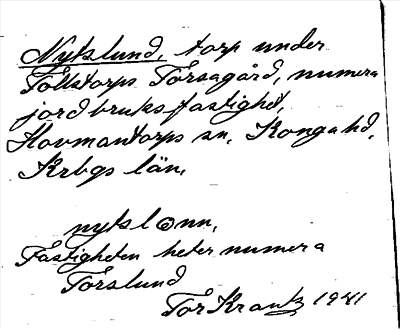 Nykslund, torp under
Tollstorps Torsagård, numera
jordbruksfastighet,
Hovmantorps sn, Konga hd,
Krbgs län.
nykslɷnn,
Fastigheten heter numera
Torslund
Tor Krantz 1941